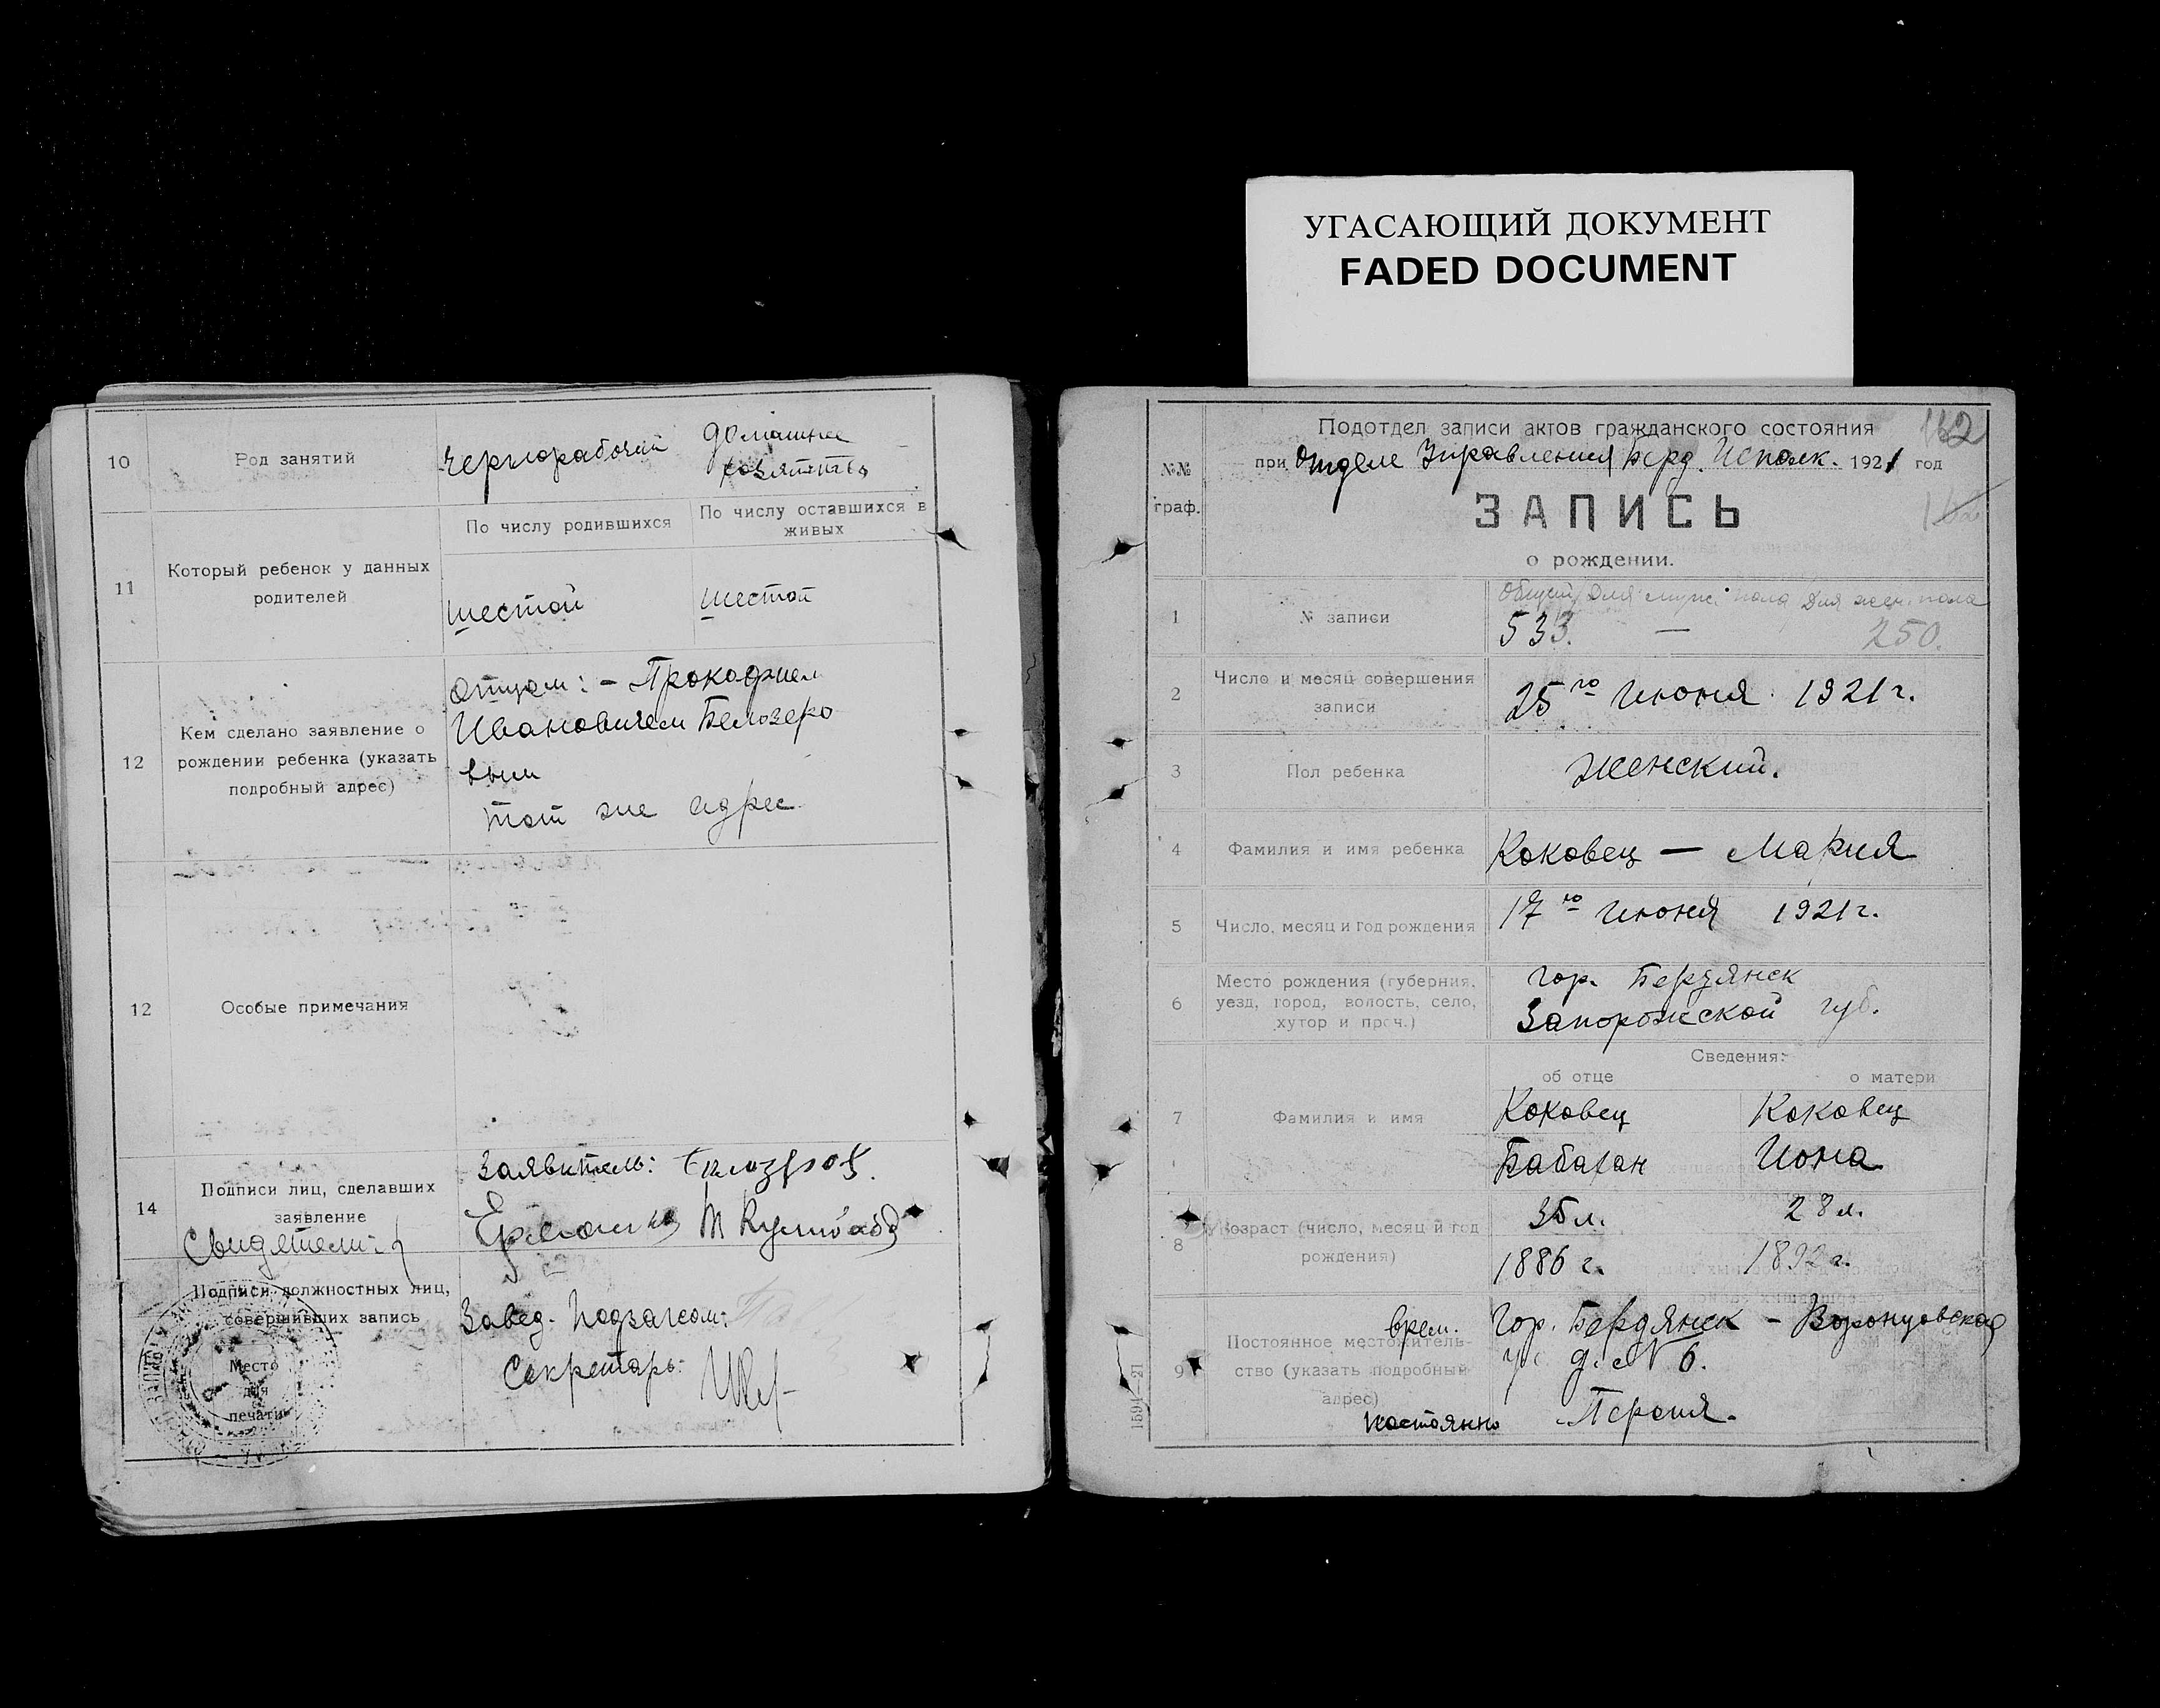 УГАСАЮЩИЙ ДОКУМЕНТ
FADED DOCUMENT
10
Род занятий
чернорабочий
домашнее
хозяйство
11
Который ребенок у данных
родителей
По числу родившихся
По числу оставшихся в
живых
шестой
шестой
12
Кем сделано заявление о
рождении ребенка (указать
подробный адрес)
отцом: – Прокофием
Ивановичем Белозеро
вым
тот же адрес
12
Особые примечания
14
Подписи лиц, сделавших
заявление
Свидетели:
Заявитель: Белозеров.
Подписи должностных лиц,
совершивших запись
Место
для
печати
Завед. Подзагсом:
Секретарь:
162
Подотдел записи актов гражданского состояния
при Отделе Управления Берд. Исполк. 1921 год
№№
граф.
ЗАПИСЬ
о рождении.
1
№ записи
Общий Для муж. пола Для жен. пола
533. — 250.
2
Число и месяц совершения
записи
25го Июня 1921 г.
3
Пол ребенка
Женский.
4
Фамилия и имя ребенка
Коковец — Мария
5
Число, месяц и год рождения
17го Июня 1921 г.
6
Место рождения (губерния,
уезд, город, волость, село,
хутор и проч.)
гор. Бердянск
Запорожской губ.
Сведения:
об отце
о матери
7
Фамилия и имя
Коковец
Коковец
Бабахан
Иона
8
Возраст (число, месяц и год
рождения)
35 л.
28 л.
1886 г.
1892 г.
9
Постоянное местожитель-
ство (указать подробный
адрес)
врем.
Гор. Бердянск – Воронцовская
ул. д. № 6.
постоянно
Персия.
1594—21